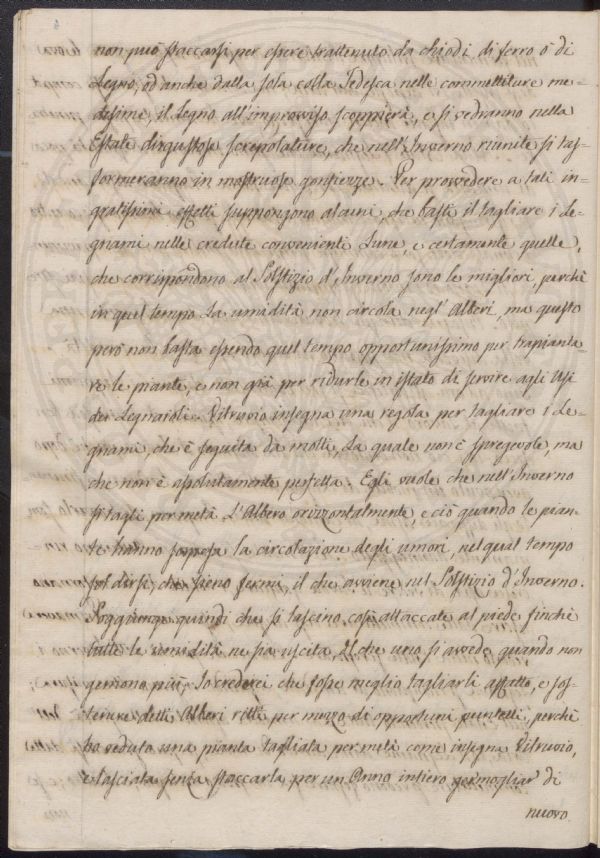 non può staccarsi per essere trattenuto da chiodi di ferro ò di
Legno, od anche dalla sola colla Tedesca nelle commettiture me-
desime, il Legno all'improvviso scoppierà, e si vedranno nella
Estate disgustose screpolature, che nell'Inverno riunite si tas-
formeranno in mostruose gonfiezze. Per provvedere a tali in-
gratissimi effetti suppongono alcuni, che basti il tagliare i Le-
gnami nelle credute convenienti Lune, e certamente quelle,
che corrispondono al Solstizio d'Inverno sono le migliori, perchè
in quel tempo la umidità non circola negl'Alberi, ma questo
però non basta essendo quel tempo opportunissimo per trapianta-
re le piante, e non già per ridurle in istato di servire agli Usi
dei Legnaioli. Vitruvio insegna una regola per tagliare i Le-
gnami, che è seguita da molti, la quale non è spregevole, ma
che non è assolutamente perfetta. Egli vuole che nell'Inverno
si tagli per metà L'Albero orizzontalmente, e ciò quando le pian-
te hanno sospesa la circolazione degli umori, nel qual tempo
può dirsi, che sieno fermi, il che avviene nel Solstizio d'Inverno.
Soggiunge quindi che si lascino così attaccate al piede finchè
tutte le umidità ne sia uscita, Il che uno si avvede quando non
gemono più. Io crederei che fosse meglio tagliarli affatto, e sos-
tenere detti Alberi ritti per mezzo di opportuni puntelli, perchè
ho veduto una pianta tagliata per metà come insegna Vitruvio,
e lasciata senza staccarla per un Anno intiero germogliar di
nuovo